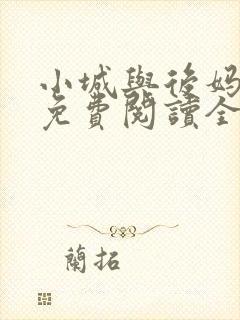 小城與後妈
免費閱讀全
蘭拓